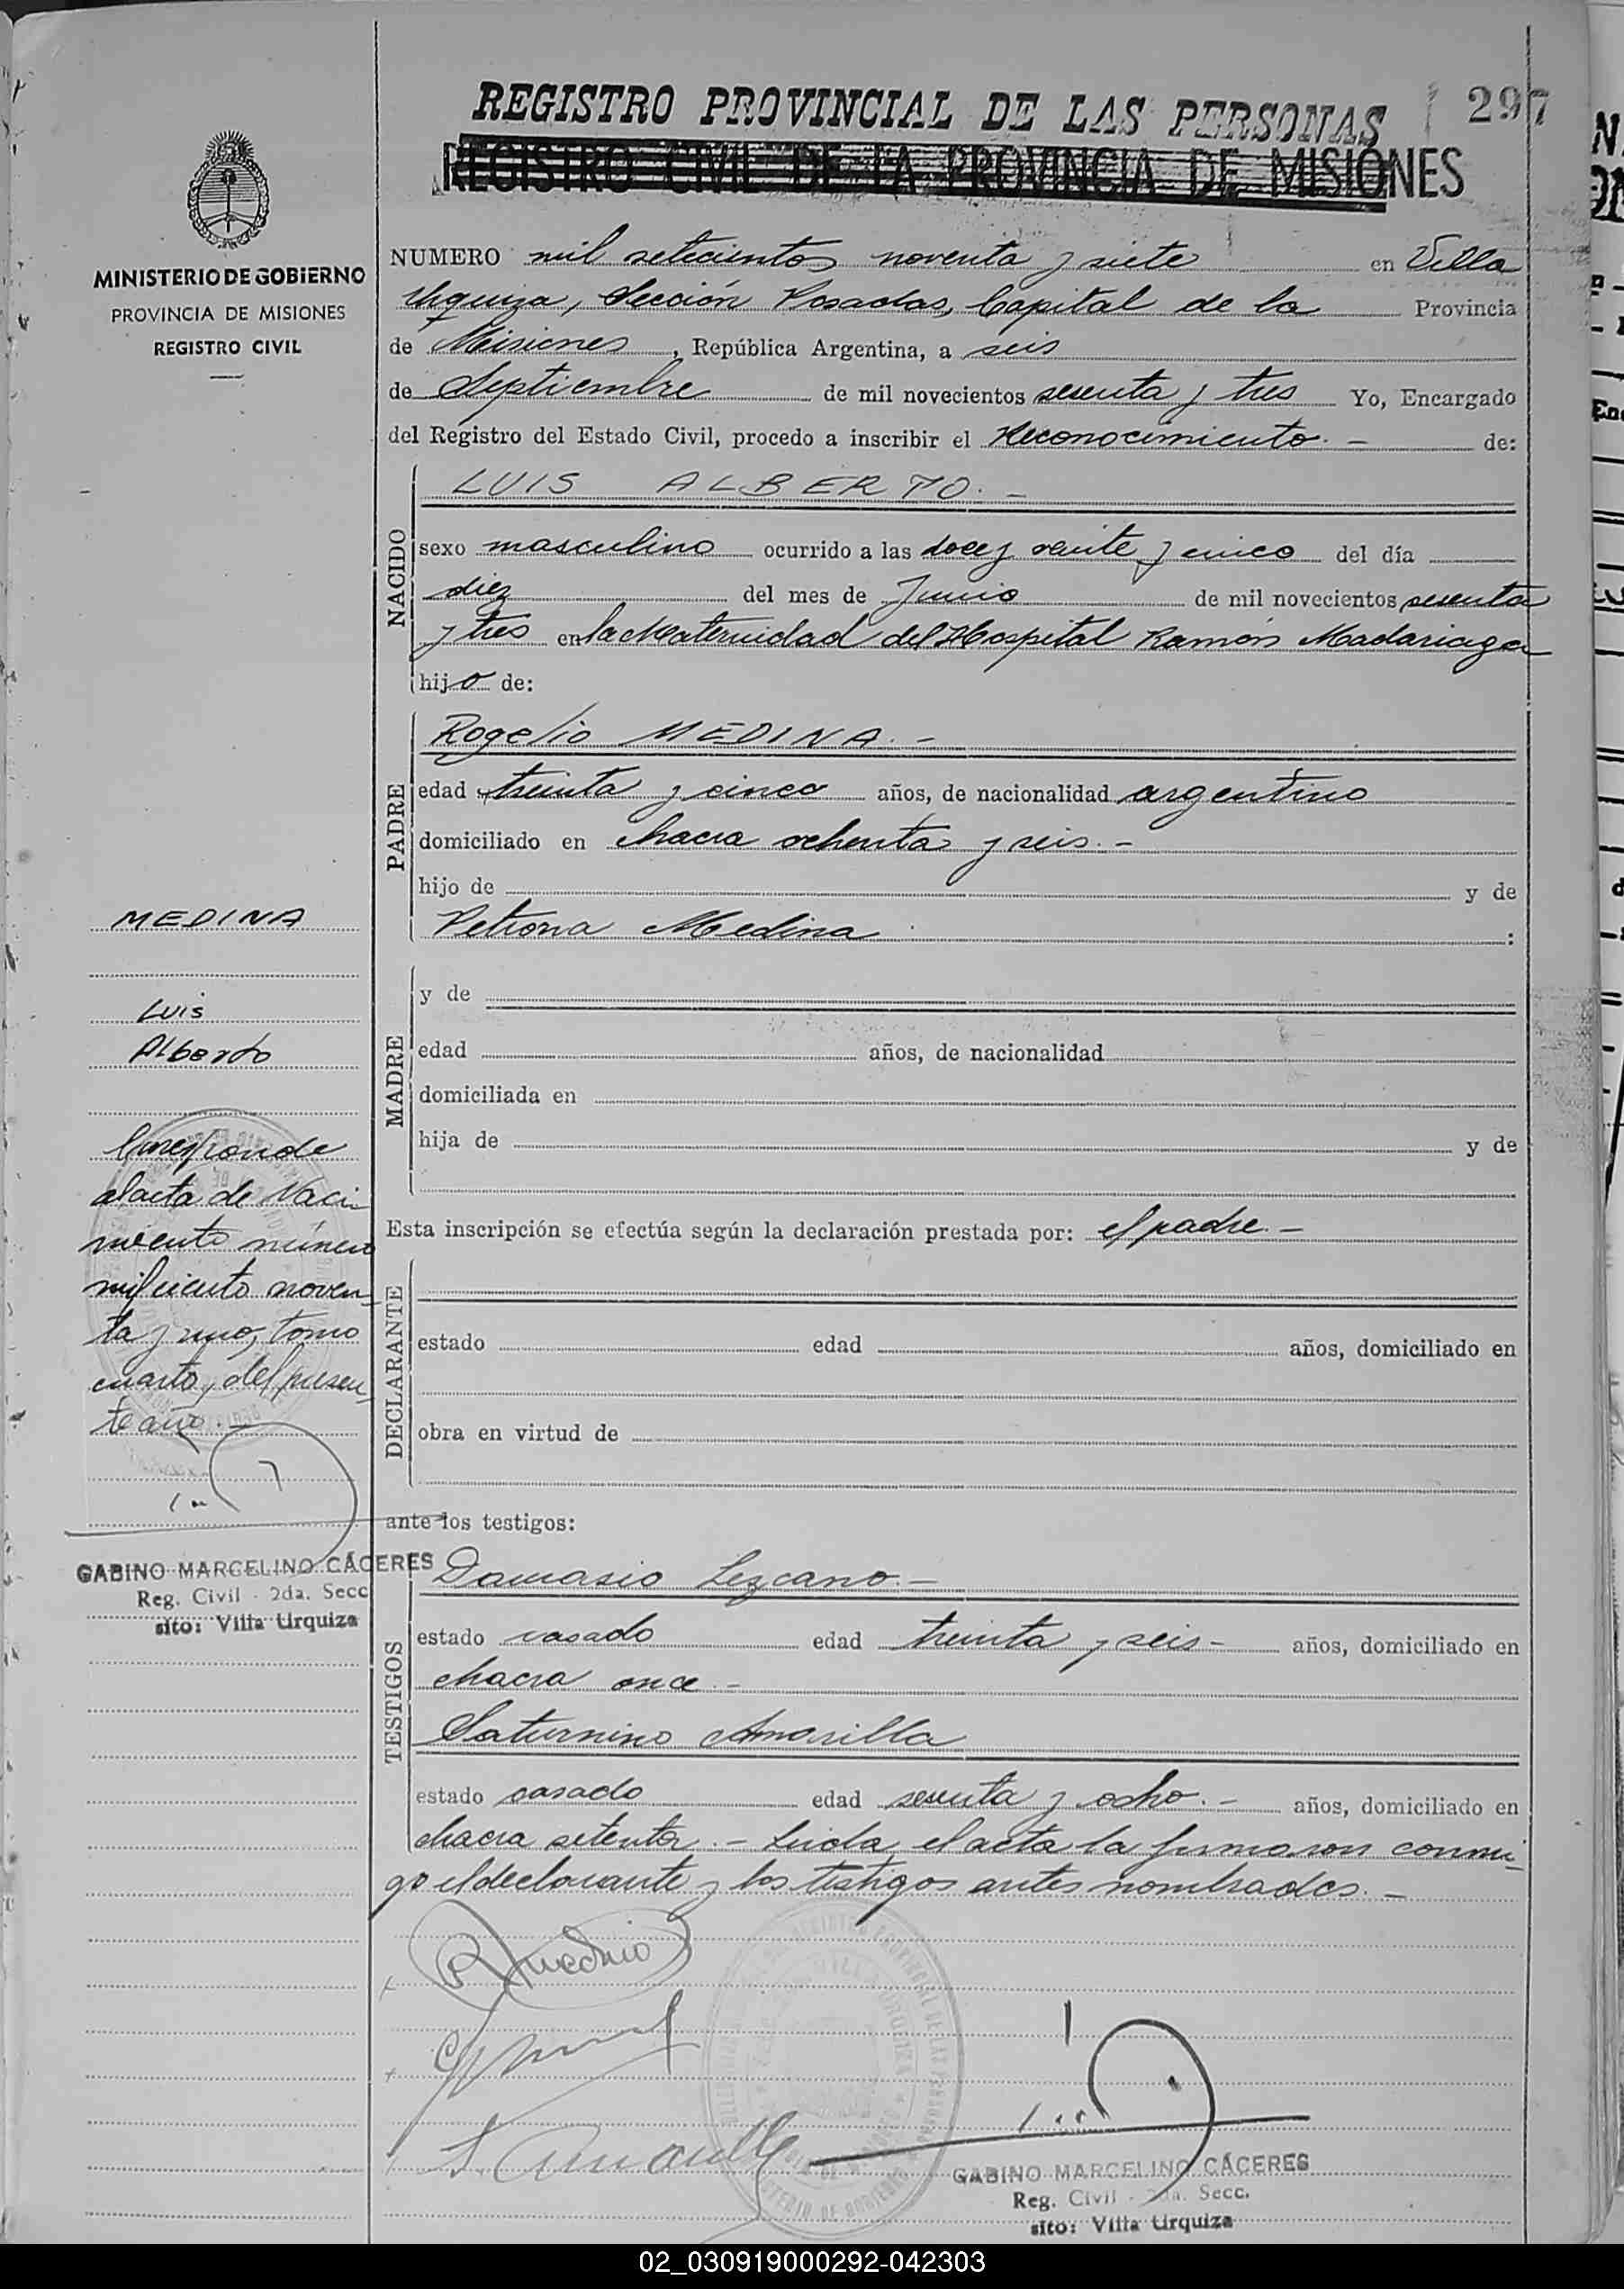 REGISTRO PROVINCIAL DE LAS PERSONAS 297
REGISTRO CIVIL DE LA PROVINCIA DE MISIONES
MINISTERIO DE GOBIERNO
PROVINCIA DE MISIONES
REGISTRO CIVIL
NUMERO mil setecientos noventa y siete en Villa
Urquiza, Sección Posadas, Capital de la Provincia
de Misiones, República Argentina, a seis
de Septiembre de mil novecientos sesenta y tres Yo, Encargado
del Registro del Estado Civil, procedo a inscribir el Reconocimiento.- de:
NACIDO
LUIS ALBERTO.-
sexo masculino ocurrido a las doce y veinte y cinco del día
diez del mes de Junio de mil novecientos sesenta
y tres en la Maternidad del Hospital Ramón Madariaga
hijo de:
PADRE
Rogelio MEDINA.-
edad treinta y cinco años, de nacionalidad argentino
domiciliado en chacra ochenta y seis.-
hijo de y de
Petrona Medina :
MADRE
y de
edad años, de nacionalidad
domiciliada en
hija de y de
Esta inscripción se efectúa según la declaración prestada por: el padre.-
DECLARANTE
estado edad años, domiciliado en
obra en virtud de
ante los testigos:
TESTIGOS
Damasio Lezcano.-
estado casado edad treinta y seis- años, domiciliado en
chacra once.-
Saturnino Amarilla
estado casado edad sesenta y ocho.- años, domiciliado en
chacra setenta.- Leida el acta la firmaron conmi-
go el declarante y los testigos antes nombrados.-
GABINO MARCELINO CÁCERES
Reg. Civil - 2da. Secc.
sito: Villa Urquiza
MEDINA
Luis
Alberto
Corresponde
al acta de Naci-
miento número
mil ciento noven-
ta y uno, tomo
cuarto, del presen-
te año.-
GABINO MARCELINO CÁCERES
Reg. Civil - 2da. Secc
sito: Villa Urquiza
02_030919000292-042303